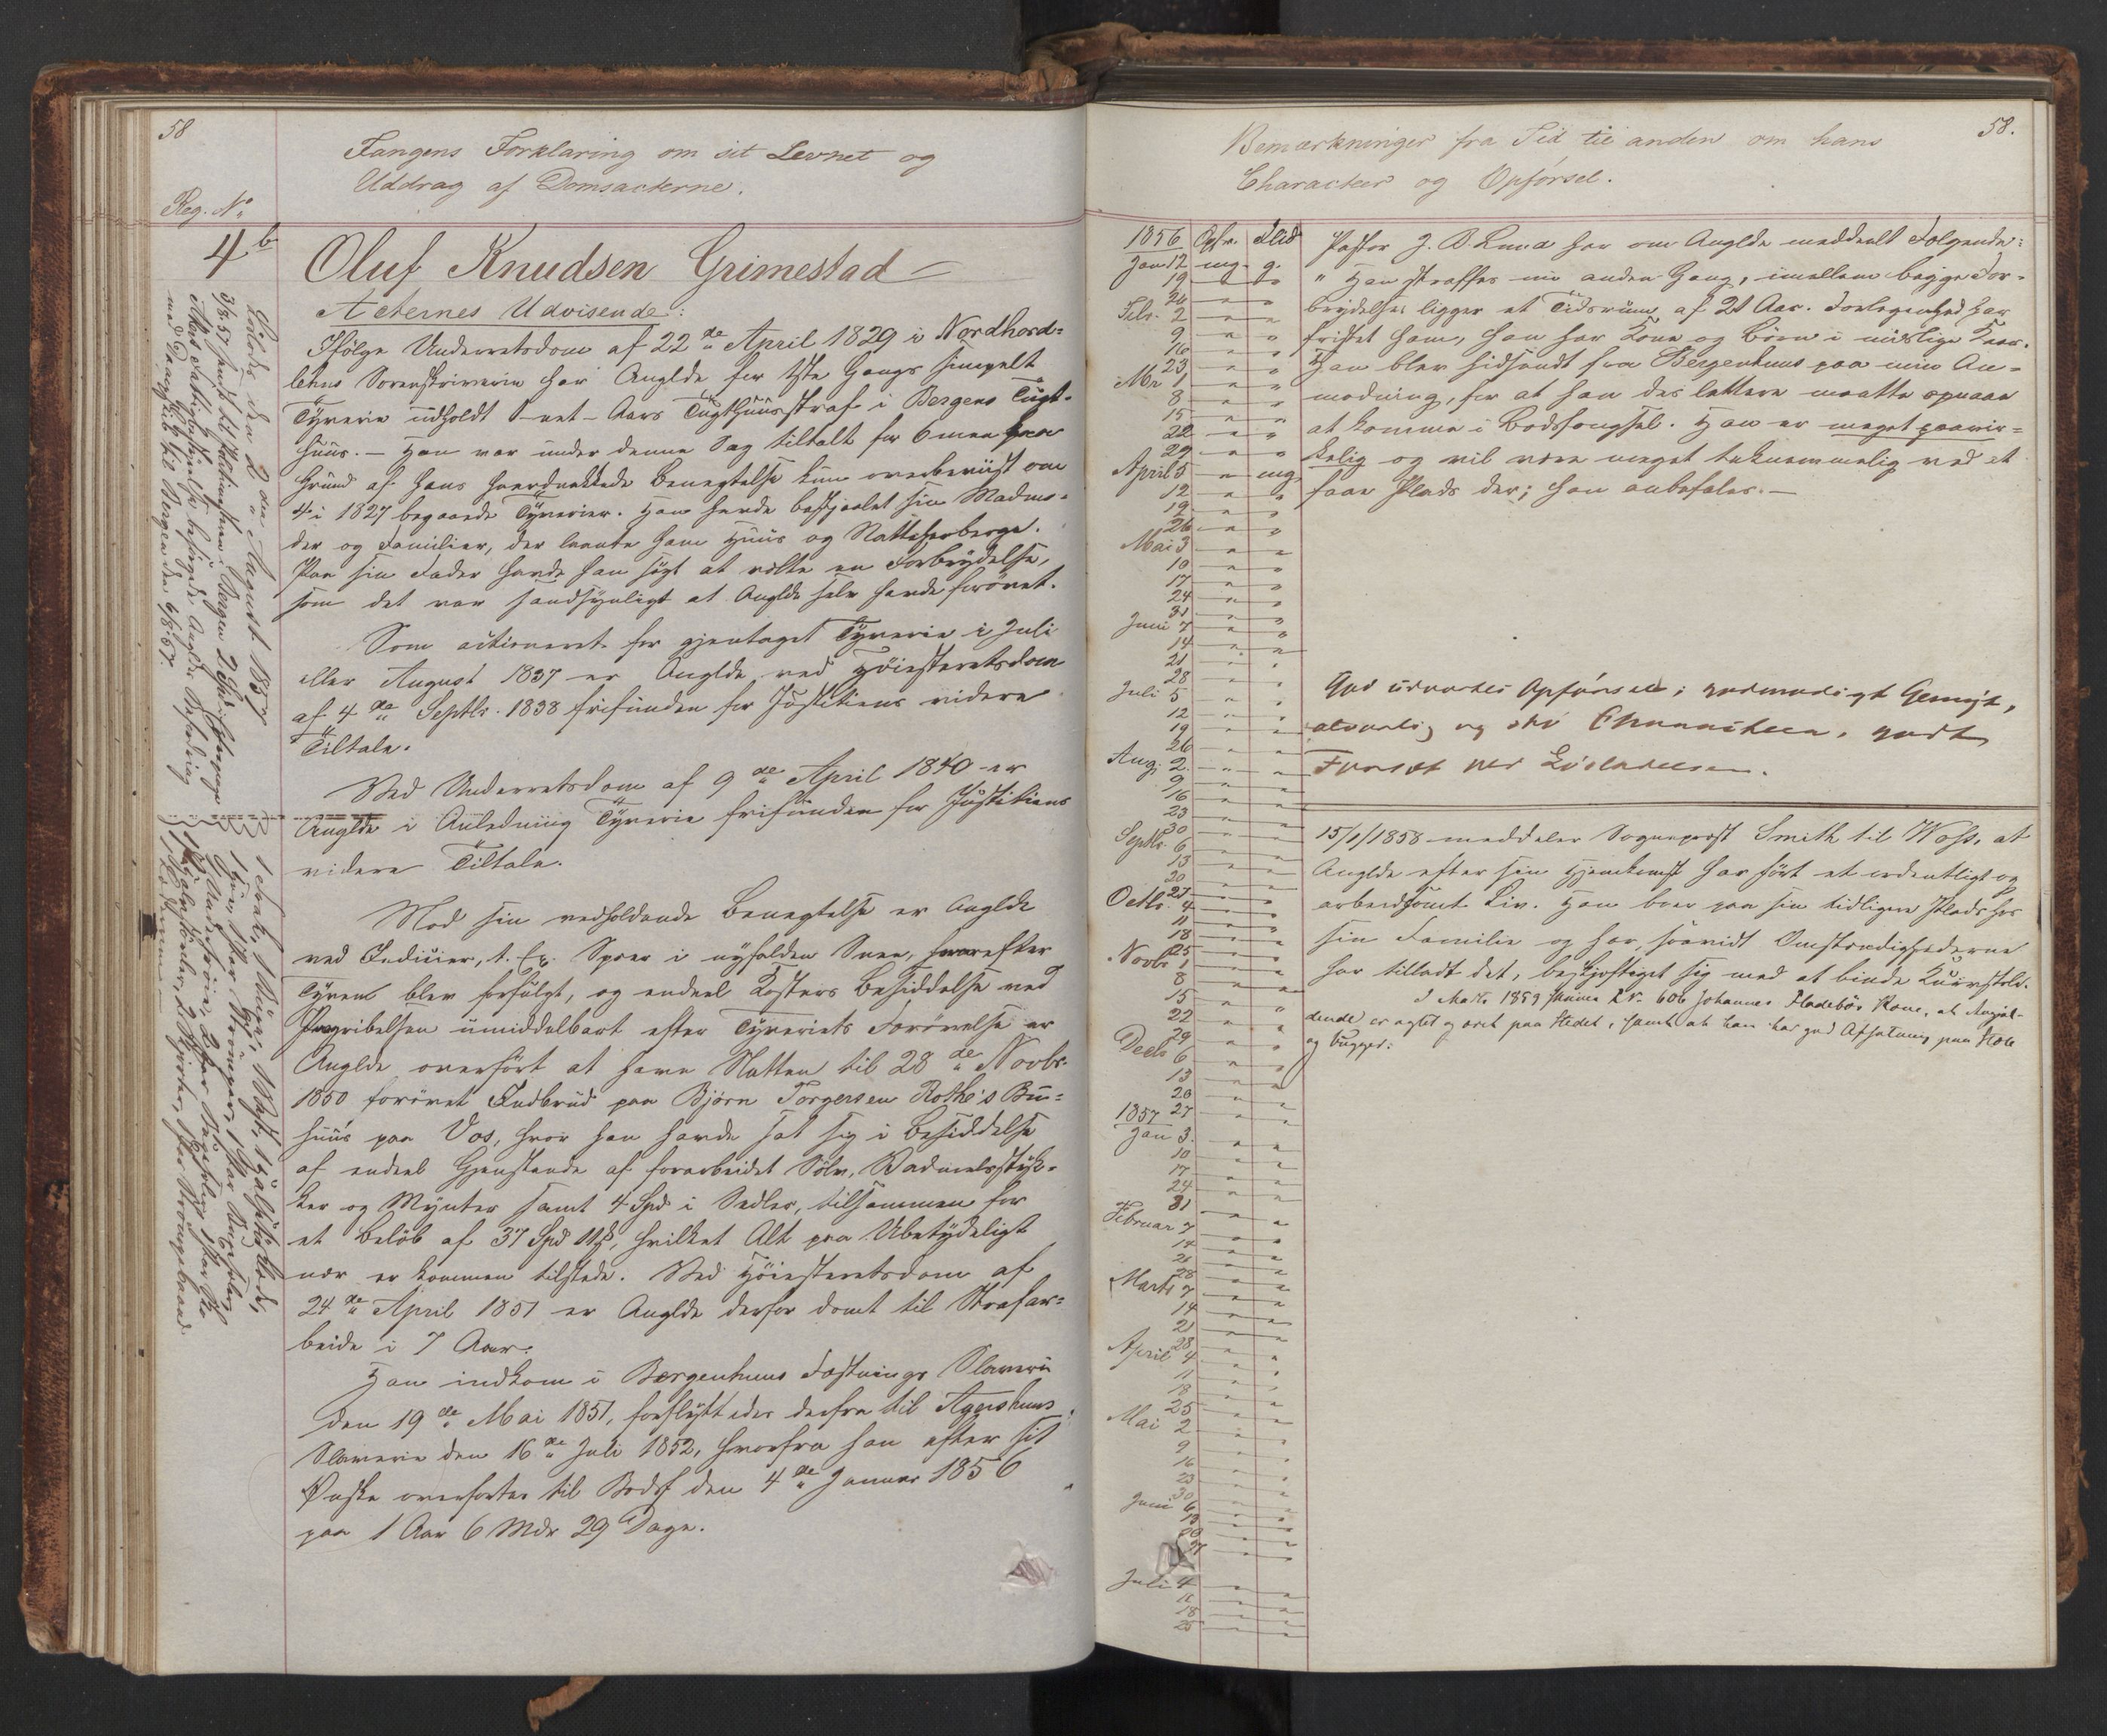 58
Fangens Forklaring om sit Levnet og
Uddrag af Domsacterne.
Reg. No
4b
Oluf Knudsen Grimestad
Acternes Udvisende:
Ifølge Underretsdom af 22de April 1829 i Nordhord=
lehns Sorenskriverie har Angldr for 1ste Gangs simpelt
Tyverie udholdt 1-eet-Aars Tugthuusstraf i Bergens Tugt-
huus. — Han var under denne Sag tiltalt for 6 men paa
Grund af hans haardnakkede Benegtelse kun overbeviist om
4 i 1827 begaaede Tyverier. Han havde bestjaalet sin Madmo-
der og Familier, der laante ham Huus og Natteherberge.
Paa sin Fader havde han søgt at vælte en Forbrydelse,
som det var sandsynligt at Angldr selv havde forøvet.
Som actioneret for gjentaget Tyverie i Juli
eller August 1837 er Angldr ved Høiesteretsdom
af 4de Septbr. 1838 frifunden for Justitiens videre
Tiltale.
Ved Underretsdom af 9de April 1840 er
Angldr i Anledning Tyverie frifunden for Justitiens
videre Tiltale.
Mod sin vedholdende Benegtelse er Angldr
ved Indicier, t. Ex. Spoer i nyfalden Snee, hvorefter
Tyven blev forfulgt, og endeel Kosters Besiddelse ved
Paagribelsen umiddelbart efter Tyveriets Forøvelse er
Angldr overført at have Natten til 28de Novbr.
1850 forøvet Indbrud paa Bjørn Torgersen Rothe's Bu=
huus paa Vos, hvor han havde sat sig i Besiddelse
af endeel Gjenstande af forarbeidet Sølv, Vadmelsstyk-
ker og Mynter samt 4 Spd i Sedler, tilsammen for
et Beløb af 37 Spd, hvilket Alt paa Ubetydeligt
nær er kommen tilstede. Ved Høiesteretsdom af
24de April 1851 er Angldr derfor dømt til Strafar=
beide i 7 Aar.
Han indkom i Bergenhuus Fæstnings Slaverie
den 19de Mai 1851, forflyttedes derfra til Agershuus
Slaverie den 16de Juli 1852, hvorfra han efter sit
Ønske overførtes til Bodsf den 4de Januar 1856
paa 1 Aar 6 Mdr 29 Dage.
Løslodes den 2den August 1857
3/8 57 sendt til Politimesteren i Bergen
med Dampskib til Bergen den 6/8 57.
58.
Bemærkninger fra Tid til anden om hans
Characteer og Opførsel.
1856 Opfør. Flid
Jan 12 mg. g.
19 " "
26 " "
Febr. 2 " "
9 " "
16 " "
23 " "
Mr 1 " "
8 " "
15 " "
22 " "
29 " "
April 5 " mg
12 " "
19 " "
26 " "
Mai 3 " "
10 " "
17 " "
24 " "
31 " "
Juni 7 " "
14 " "
21 " "
28 " "
Juli 5 " "
12 " "
19 " "
26 " "
Aug. 2 " "
9 " "
16 " "
23 " "
30 " "
Septbr 6 " "
13 " "
20 " "
27 " "
Octbr. 4 " "
11 " "
18 " "
25 " "
Novbr 1 " "
8 " "
15 " "
22 " "
29 " "
Decbr 6 " "
13 " "
20 " "
27 " "
1857
Jan 3. " "
10 " "
17 " "
24 " "
31 " "
Februar 7 " "
14 " "
21 " "
28 " "
Marts 7 " "
14 " "
21 " "
28 " "
April 4 " "
11 " "
18 " "
25 " "
Mai 2 " "
9 " "
16 " "
23 " "
30 " "
Juni 6 " "
13 " "
20 " "
27 " "
Juli 4 " "
11 " "
18 " "
25 " "
Pastor J. B. Lund har om Angldr meddeelt Følgende:
" Han straffes nu anden Gang, imellem begge For-
brydelser ligger et Tidsrum af 21 Aar. Forlegenhed har
fristet ham, han har Kone og Børn i mislige Kaar.
Han blev hidsendt fra Bergenhuus paa min An=
modning, for at han des lettere maatte opnaae
at komme i Bodsfængsel. Han er meget paavir=
kelig og vil være meget taknemmelig ved at
faae Plads der; han anbefales. —
God udvortes Opførsel; godmodigt Gemyt,
alvorlig og Characteer, godt
Forsæt ved Løsladelsen.
15/1/1858 meddeler Sogneprest Smith til Woss, at
Angldr efter sin Hjemkomst har ført et ordentligt og
arbeidsomt Liv. Han boer paa sin tidligere Plads hos
sin Familie og har, saavidt Omstændighederne
har tilladt det, beskjæftiget sig med at binde Kurvstole.
I Marts 1859 No. 606 Johannes Fladebøs Kone, at Angjæl-
dende er agtet og æret paa Stedet, samt at han har god Afsætning paa Stole
og Vugger.